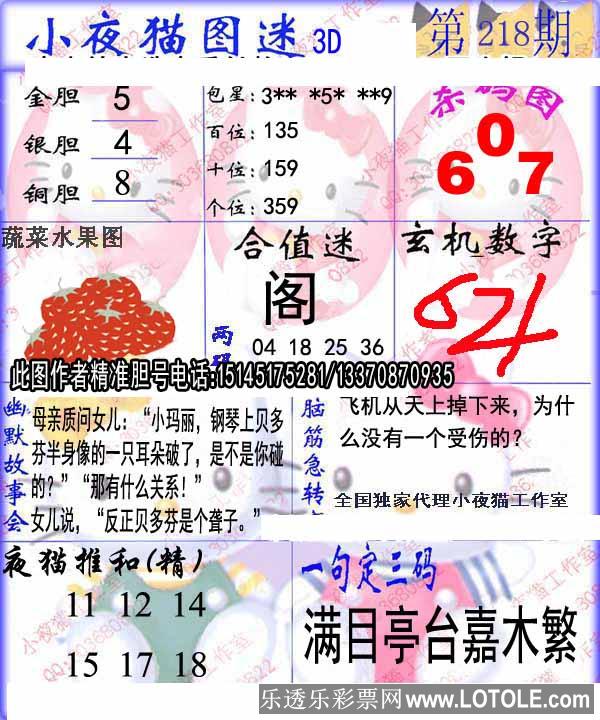 小夜猫图迷 3D 第218期
金胆 5
银胆 4
铜胆 8
包星:3** *5* **9
百位:135
十位:159
个位:359
杀码图
6 0 7
蔬菜水果图
合值迷
阁
两码
04 18 25 36
玄机数字
此图作者精准胆号电话:15145175281/13370870935
幽默故事会
母亲质问女儿：“小玛丽，钢琴上贝多
芬半身像的一只耳朵破了，是不是你碰
的？”“那有什么关系！”
女儿说，“反正贝多芬是个聋子。”
脑筋急转
飞机从天上掉下来，为什
么没有一个受伤的？
全国独家代理小夜猫工作室
夜猫推和(精)
11 12 14
15 17 18
一句定三码
满目亭台嘉木繁
乐透乐彩票网www.LOTOLE.com